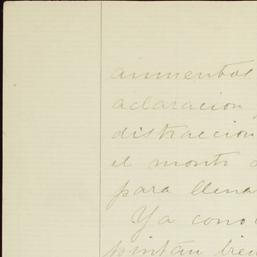 aclaracion
distraccion
el monto
para llena
Ya cono
pintan bie